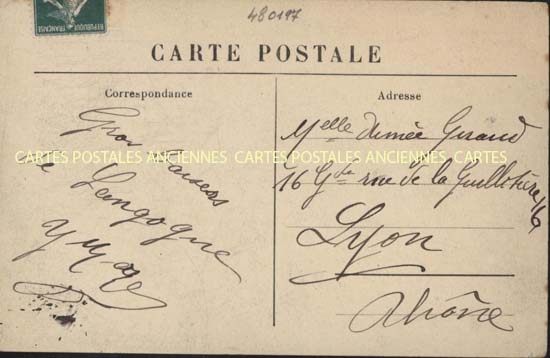 480197
RÉPUBLIQUE FRANÇAISE
CARTE POSTALE
Correspondance
Adresse
Gros Baisers
de Langogne
Y
Melle Aimée Guraud
16 Gde rue de la Guillotière 16
Lyon
Rhône
CARTES POSTALES ANCIENNES CARTES POSTALES ANCIENNES CARTES POSTALES ANCIENNES